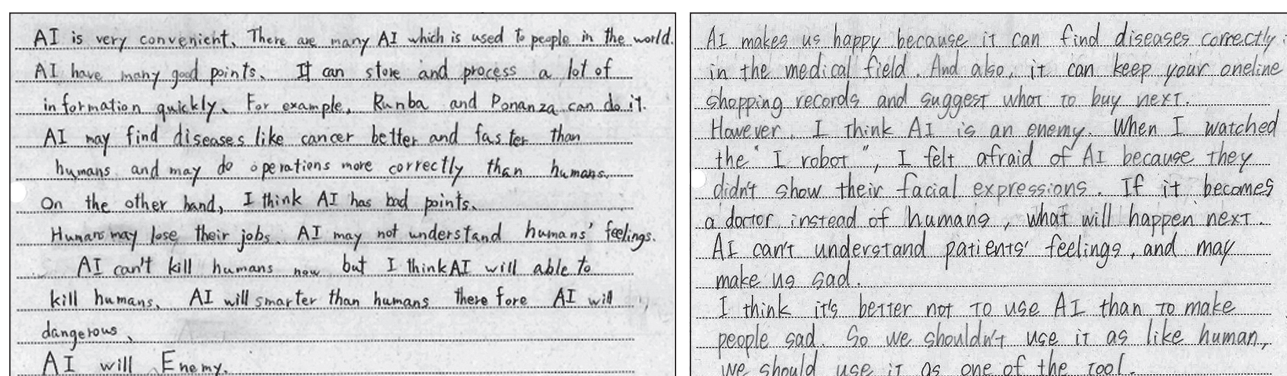 AI is very convenient. There are many AI which is used to people in the world.
AI have many good points. It can store and process a lot of
information quickly. For example, Runba and Ponanza can do it.
AI may find diseases like cancer better and faster than
humans and may do operations more correctly than humans.
On the other hand, I think AI has bad points.
Humans may lose their jobs. AI may not understand humans' feelings.
AI can't kill humans now but I think AI will able to
kill humans. AI will smarter than humans there fore AI will
dangerous.
AI will Enemy.
AI makes us happy because it can find diseases correctly
in the medical field. And also, it can keep your oneline
shopping records and suggest what to buy next.
However, I think AI is an enemy. When I watched
the "I robot", I felt afraid of AI because they
didn't show their facial expressions. If it becomes
a doctor instead of humans, what will happen next.
AI can't understand patients' feelings, and may
make us sad.
I think it's better not to use AI than to make
people sad. So we shouldn't use it as like human,
we should use it as one of the tool.